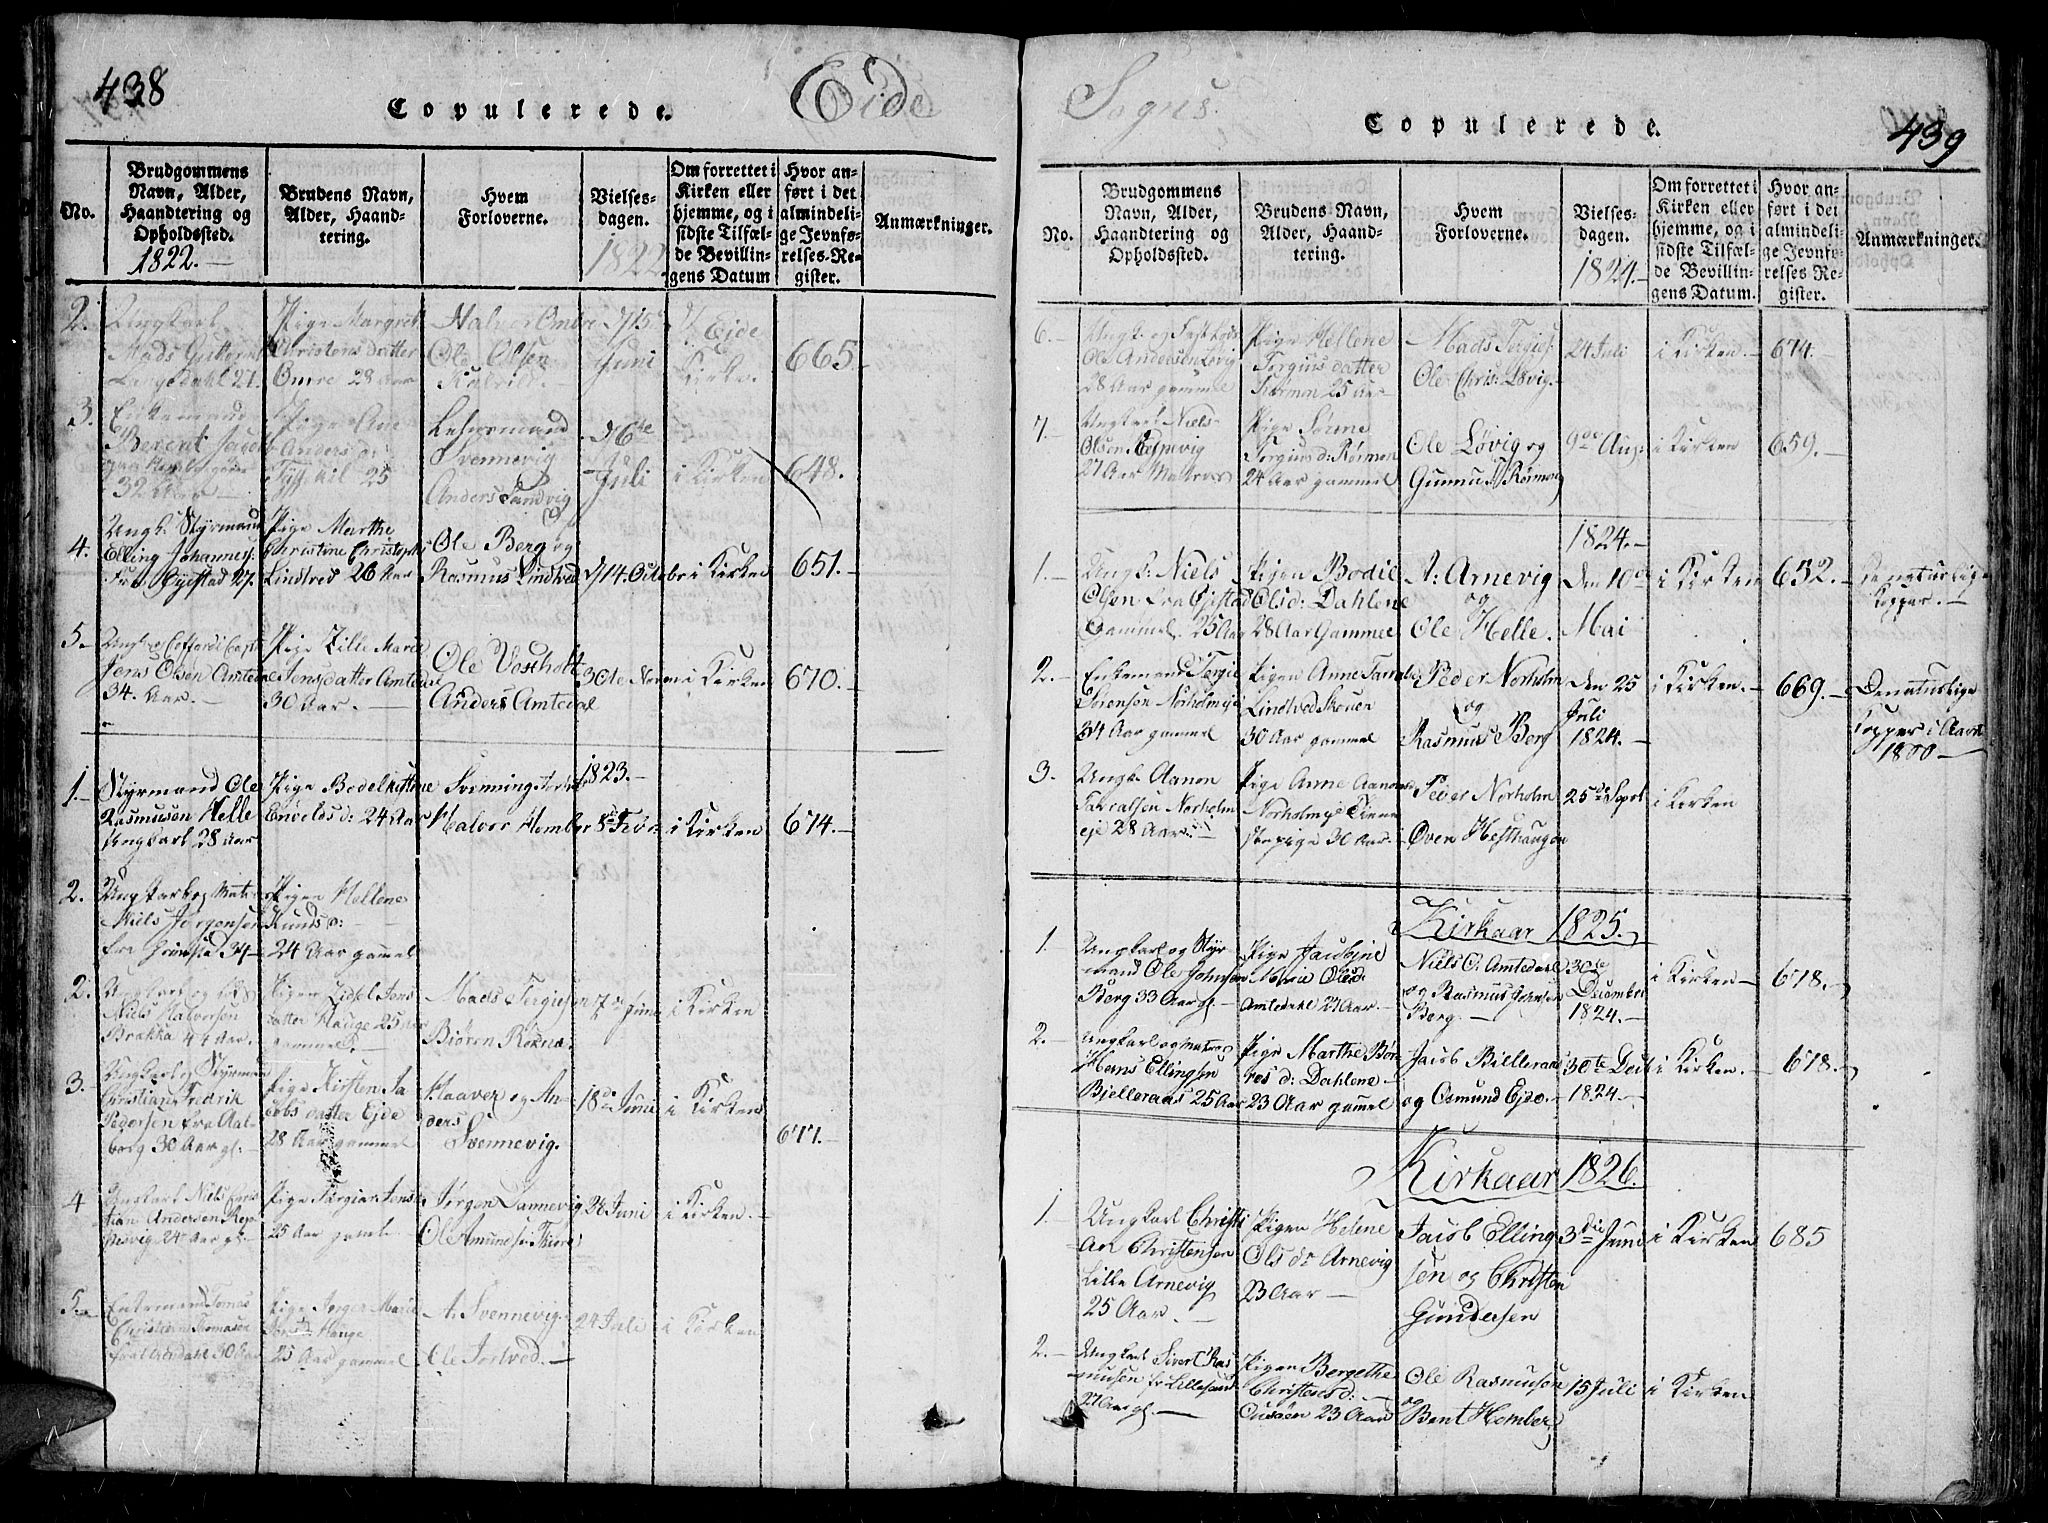 438
Copulerede.
Eide
No.
Brudgommens
Navn, Alder,
Haandtering og
Opholdssted.
1822.
Brudens Navn,
Alder, Haand-
tering.
Hvem
Forloverne.
Vielses-
dagen.
1822
Om forrettet i
Kirken eller
hjemme, og i
sidste Tilfæl-
de Bevillin-
gens Datum
Hvor an-
ført i det
almindeli-
ge Jevnfø-
relses-Re-
gister.
Anmærkninger.
2.
Ungkarl
Mads Guttorms
Langedahl 27.
Pige Margret
Christensdatter
Omre 28 Aar
Halvor Omre
Ole Olsen
Kalvild.
d 15de
Juni
Eide
Kirke.
665.
3.
Enkemand
Berent Jacob
32 Aar
Pige Ane
Anders d:
25
Lehnsmand
Svennevig
Anders Sandvig
d 6te
Juli
i Kirken
648.
4.
Ungk: Styrmand
Elling Johannes:
fra 27.
Pige Marthe
Christine Christophs
Lindtved 26 Aar
Ole Berg og
Rasmus Lindtved
d 14. Octobr
i Kirken
651.
5.
Jens Olsen Amtedal
34. Aar.
Pige Zille Marie
Jensdatter Amtedal
30 Aar.
Ole Vostholt
Anders Amtedal
30te Novem
i Kirken
670.
1823.
1.
Styrmand Ole
Rasmusen Helle
Ungkarl 28 Aar
Pige Bodel Kistine
Envolds d: 24 Aar
Svenning
Halvor Homber
8de Febr
i Kirken
674.
2.
Ungkarl og Matros
Niels Jørgensen
fra Grimsta 34
Pigen Hellene
Knuds d:
24 Aar gamel
2.
Ungkarl og
Niels Halvorsen
Brakka 44 Aar.
Pigen Zidsel Jens
datter Hauge 25 Aar
gammel.
Mads Tergiesen
Biørn Roena.
7de Juni
i Kirken
3.
Ungkarl og Styrmand
Christian Fredrik
Pedersen fra Aal-
borg 30 Aar gl.
Pige Kirsten Ja-
cobs datter Ejde
28 Aar gammel
Haaver og An-
ders
Svennevig.
18de Juni
i Kirken
677.
4
Ungkarl Niels Chris
tian Andersen
24 Aar gl.
Pige Torgiar Jens
25 Aar gamel
Jørgen Sannevig
Ole Amundsen
28 Juni
i Kirken.
5.
Enkemand Tomas
Christian Thomasen
30 Aar
Pige Inger Marie
Hauge
25 Aar gammel
A. Svennevig.
Ole Tortved.
24 Juli
i Kirken
Sogns
Copulerede.
439
No.
Brudgommens
Navn, Alder,
Haandtering og
Opholdssted.
Brudens Navn,
Alder, Haand-
tering.
Hvem
Forloverne.
Vielses-
dagen.
1824.
Om forrettet i
Kirken eller
hjemme, og i
sidste Tilfæl-
de Bevillin-
gens Datum.
Hvor an-
ført i det
almindeli-
ge Jevnfø-
relses Re-
gister.
Anmærkninger.
6.
Ole Andersen Løvig
28 Aar gammel
Pige Hellene
Torgius datter
Rørmon 25 Aar
Mads Tergies:
Ole Chris: Løvig.
24 Juli
i Kirken.
674.
7.
Ungkarl Niels
Olsen
27 Aar Matros
Pige Sønne
Torgius d: Rørmon
24 Aar gammel
Ole Løvig og
Gunnu Rørmon
9de Aug:
i Kirken
659.
1824.
1.
Ungk: Niels
Olsen fra Ejestad
Gammel 25 Aar
Pigen Bodil
Ols d: Dahlene
28 Aar Gammel
A: Arnevig
og
Ole Helle.
den 10de
Mai
i Kirken
632.
de naturlige
Kopper.
2.
Enkemand Tergie
Sørensen Norholmeje
34 Aar gammel
Pigen Anne
Lindtved Skouen
30 Aar gammel
Peder Norholm
og
Rasmus Berg
den 25
Juli
1824.
i Kirken.
669.
De naturlige
Kopper i Aaret
1800
3.
Ungk: Aanon
Norholm
eje 28 Aar.
Pige Anne Aanonsd
Norholmeje Tiene
stepige 30 Aar.
Peder Norholm
Øven Hesthaugen
25de Sept
i Kirken
Kirkaar 1825.
1.
Ungkarl og Styr
mand Ole Johnsen
Berg 33 Aar gl.
Pige
Maria Olsd:
Amtedahl 21 Aar.
Niels O. Amtedahl
og Rasmus Johnsen
Berg.
30te
December
1824.
i Kirken
678.
2.
Ungkarl og Matros
Hans Ellingsen
Bjelleraas 25 Aar
Pige Marthe Bør
res d: Dahlene
23 Aar gamel
Jacob Billeraas
og Osmund Ejde.
30te Decb
1824.
i Kirken.
678.
Kirkaar 1826.
1.
Ungkarl Christi
an Christensen
Lille Arnevig
25 Aar.
Pigen Helene
Ols dr Arnevig
23 Aar
Jacob Elling
sen og Christen
Gundersen
3die Juni
i Kirken
685
2.
Ungkarl Sivert Ras
musen fr Lillesand
27 Aar gl.
Pigen Bergethe
Christens d:
23 Aar
Ole Rasmusen
og
Bent Homber
15 Juli
i Kirken